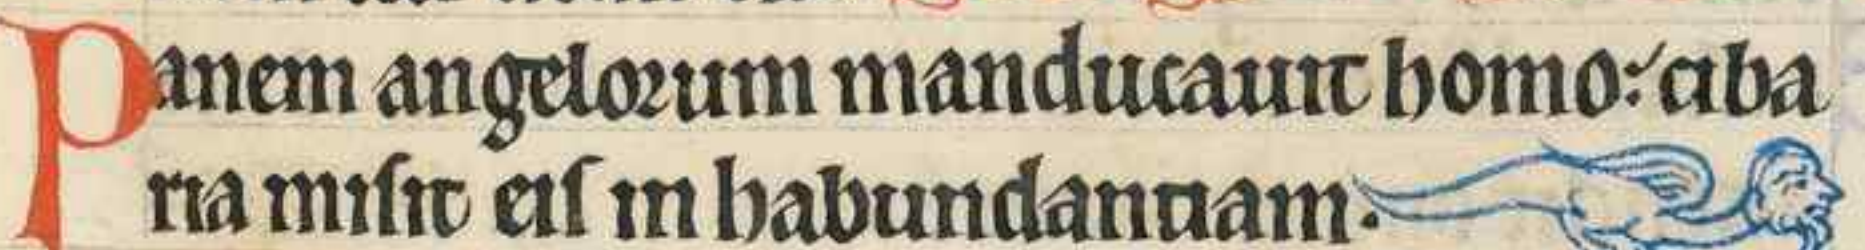 Panem angelorum manducauit homo: ciba
ria misit eis in habundantiam.